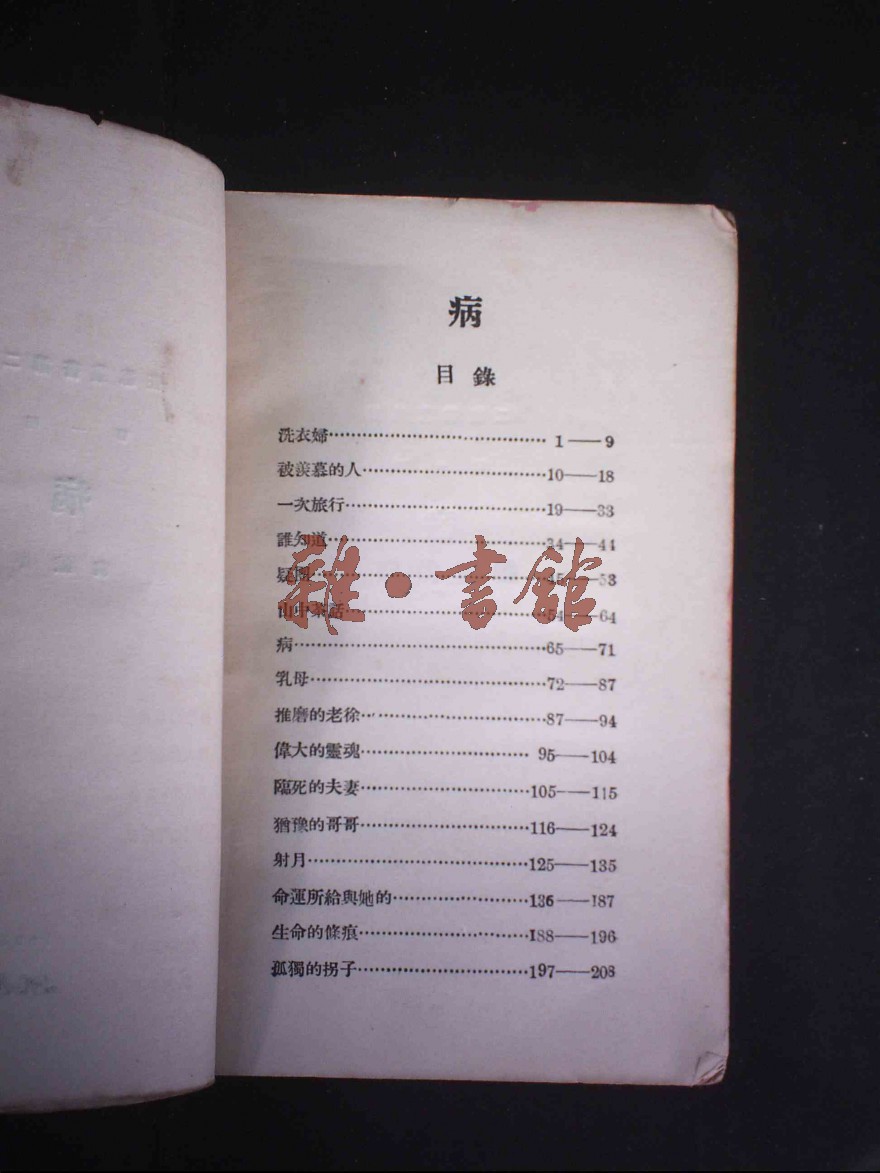 病
目錄
洗衣婦 1——9
被羨慕的人 10——18
一次旅行 19——33
誰知道 34——44
疑問 45——53
山中茶話 54——64
病 65——71
乳母 72——87
推磨的老徐 87——94
偉大的靈魂 95——104
臨死的夫妻 105——115
猶豫的哥哥 116——124
射月 125——135
命運所給與她的 136——187
生命的條痕 188——196
孤獨的拐子 197——208
雜·書館